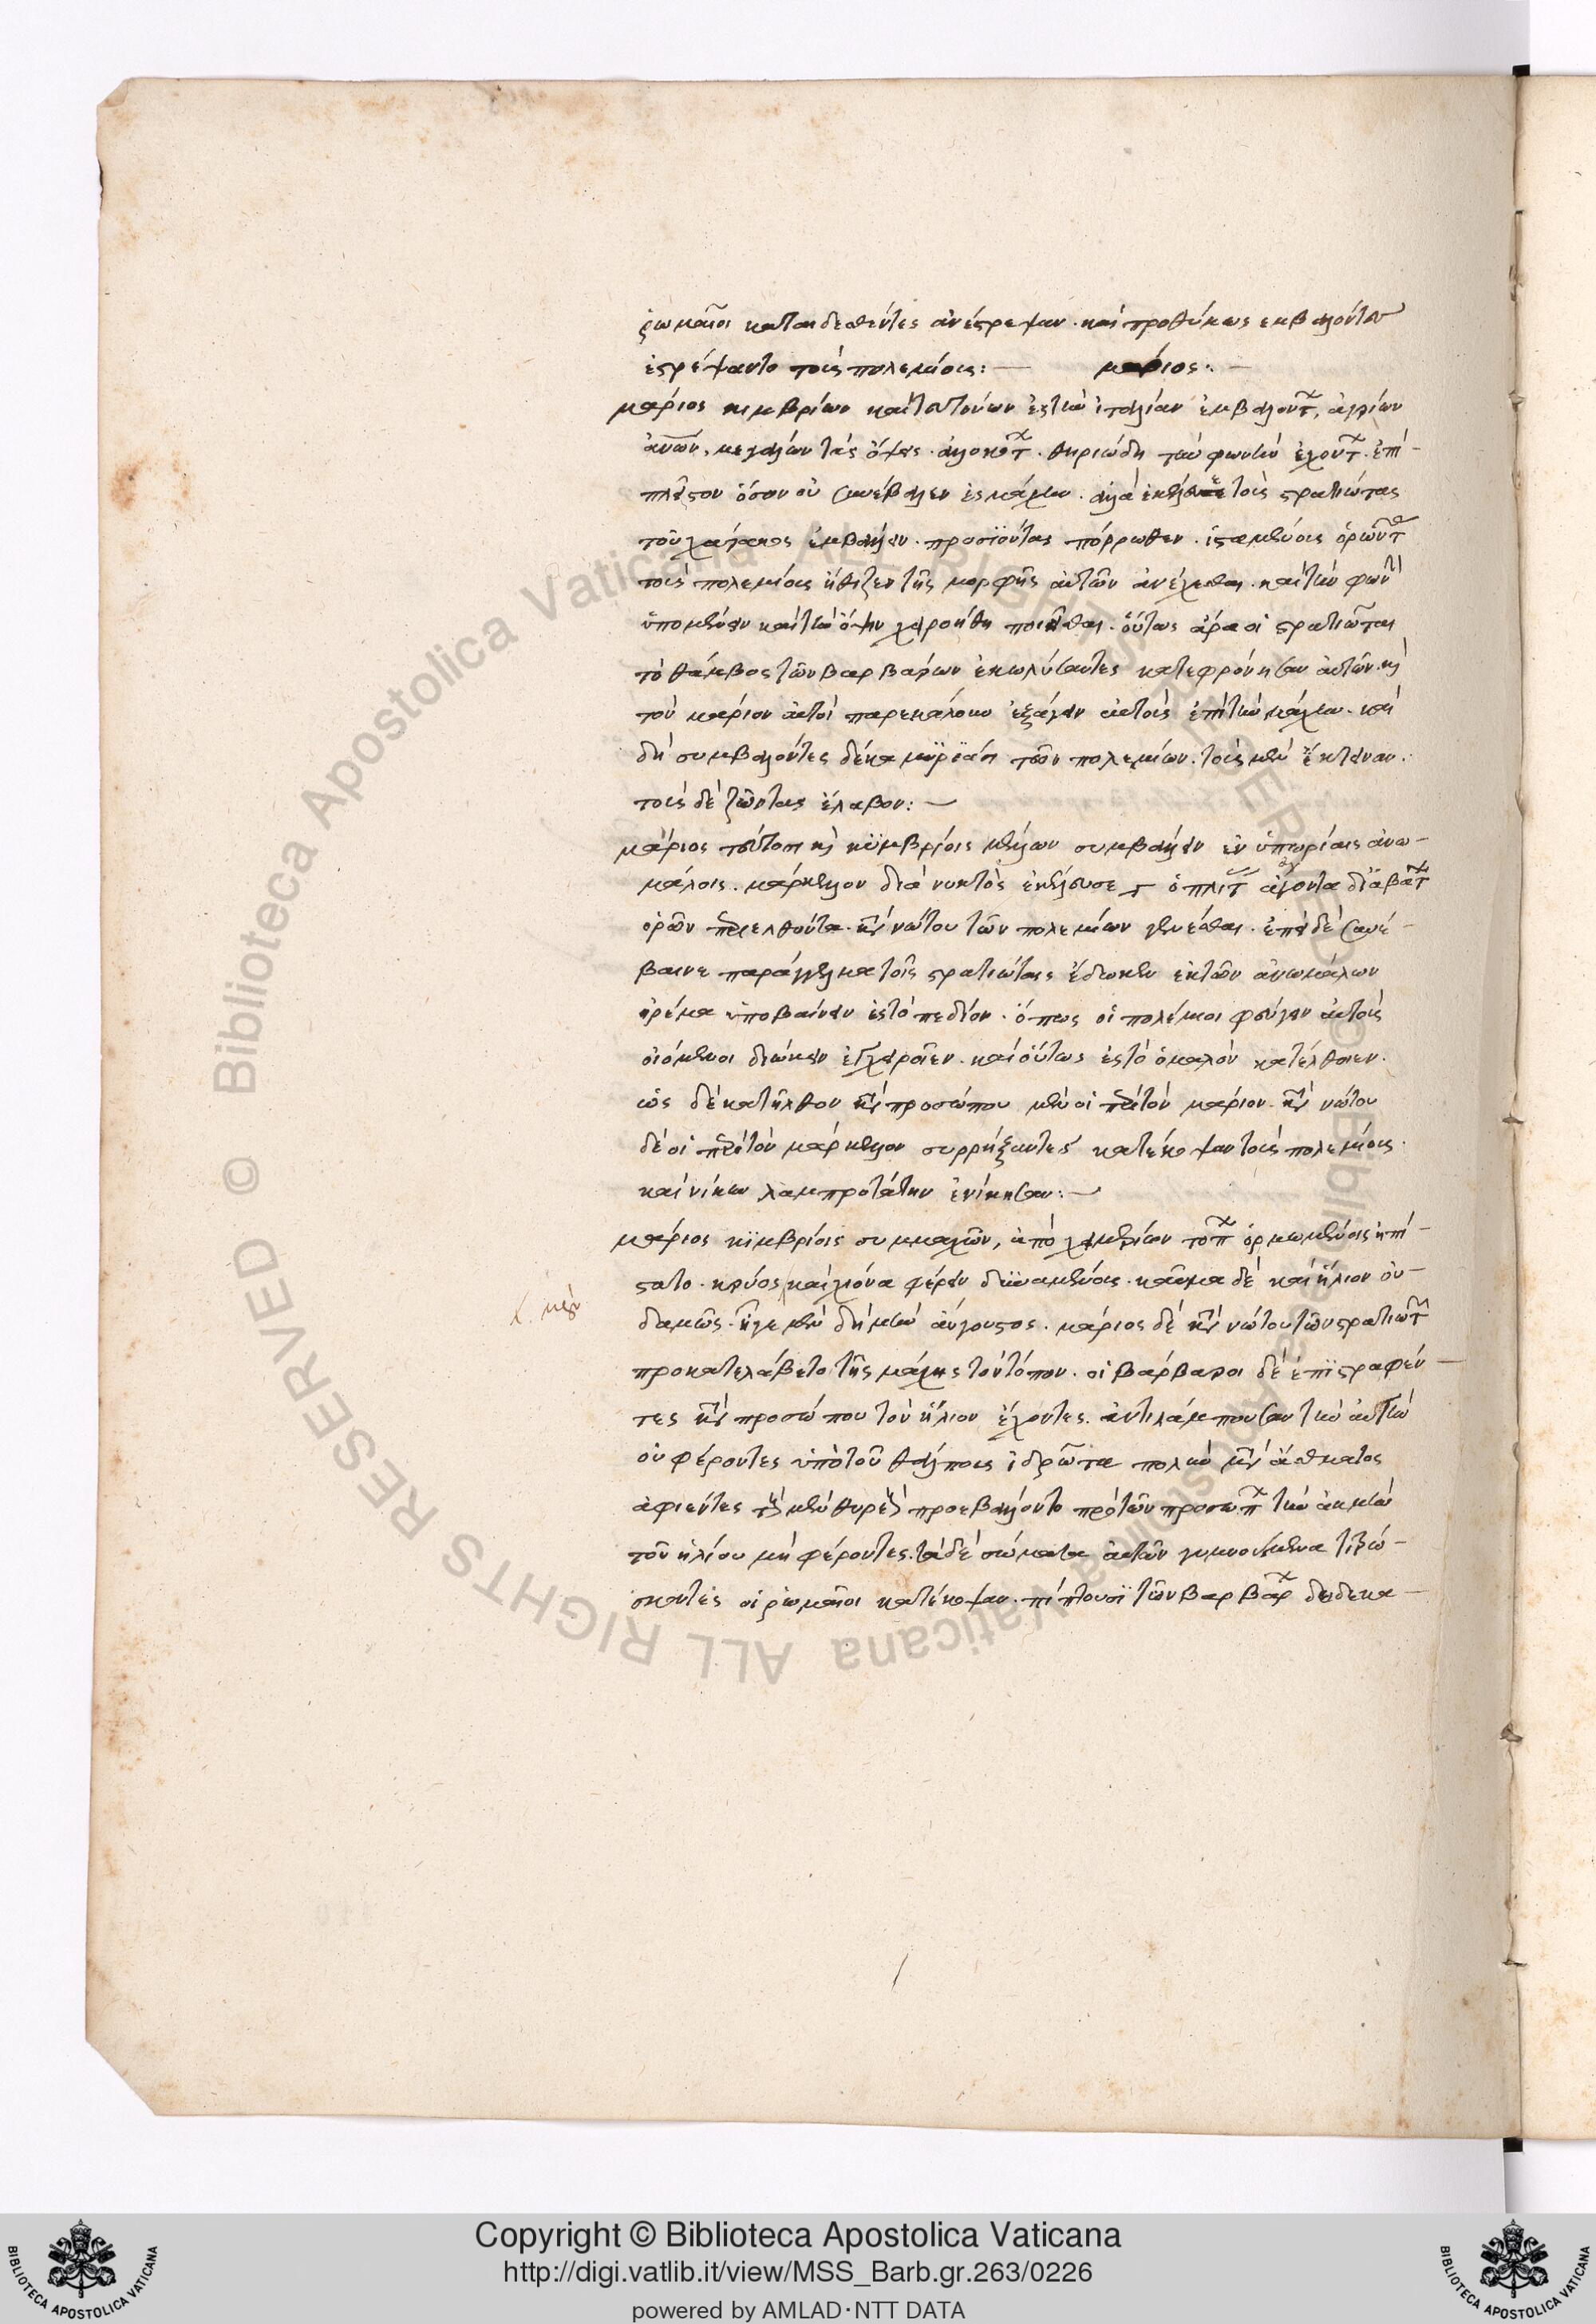 ῥωμαῖοι καταιδεσθέντες ἀνέστρεψαν. καὶ προθύμως ἐμβαλόντες
ἐτρέψαντο τοὺς πολεμίους:— μάριος:—
μάριος κιμβρίων καὶ τευτόνων ἐς τὴν ἰταλίαν ἐμβαλόντ, ἀγρίων
ἀνῶν, μεγάλων τὰς ὄψεις. ἀλοκότ. θηριώδη τὴν φωνὴν ἐχόντ. ἐπὶ
πλεῖστον ὅσον οὐ συνέβαλεν ἐς μάχην. ἀλλὰ ἐκέλευσε τοὺς στρατιώτας
τοῦ χάρακος ἐμβάλλειν. προσϊόντας πόρρωθεν. ἱσταμένους ὁρῶντ
τοὺς πολεμίους ἤθιζεν τῆς μορφῆς αὐτῶν ἀνέχεσθαι. καὶ τὴν φωνὴ
ὑπομένειν καὶ τὴν ὄψιν χειροήθη ποιεῖσθαι. οὕτως ἄρα οἱ στρατιῶται
τὸ θάμβος τῶν βαρβάρων ἐκωλύσαντες κατεφρόνησαν αὐτῶν. κὶ
τὸν μάριον αὐτοὶ παρεκάλουν ἐξάγειν αὐτοὺς ἐπὶ τὴν μάχην. καὶ
δὴ συμβαλόντες δέκα μϋρϊάσι τῶν πολεμίων. τοὺς μὲν ἔκτειναν.
τοὺς δὲ ζῶντας ἔλαβον:—
μάριος τεύτοσι κὶ κϊμβρίοις μέλλων συμβάλλειν ἐν ὑπωρίαις ἀνω-
μάλοις. μάρκελλον διὰ νυκτὸς ἐκέλευσε τ ὁπλιτ ἄγοντα δϊάβατ
ὀρῶν περιελθόντα. κατὰ νώτου τῶν πολεμίων γενέσθαι. ἐπεὶ δὲ συνέ-
βαινε παράγγελμα τοῖς στρατιώταις ἔδωκεν ἐκ τῶν ἀνωμάλων
ἠρέμα ὑποβαίνειν ἐς τὸ πεδίον. ὅπως οἱ πολέμιοι φεύγειν αὐτοὺς
οἰόμενοι διώκειν ἐγχειροῖεν. καὶ οὕτως ἐς τὸ ὁμαλὸν κατέλθοιεν.
ὡς δὲ κατῆλθον κατὰ προσώπου μὲν οἱ περὶ τὸν μάριον. κατὰ νώτου
δὲ οἱ περὶ τὸν μάρκελλον συρρήξαντες κατέκοψαν τοὺς πολεμίους.
καὶ νίκην λαμπροτάτην ἐνίκησαν:—
μάριος κϊμβρίοις συμμαχῶν, ἀπὸ χειμερίων τοπ ὁρμωμένους ἠπί-
στατο. κρύος καὶ χιόνα φέρειν δϋναμένους. καῦμα δὲ καὶ ἥλιον οὐ-
δαμῶς. ἦγε μὲν δὴ μὴν αὔγουστος. μάριος δὲ κατὰ νώτου τῶν στρατιωτ
προκατελάβετο τῆς μάχης τὸν τόπον. οἱ βάρβαροι δὲ ἐπϊστραφέν-
τες κατὰ προσώπου τὸν ἥλιον ἔχοντες. ἀντιλάμπουσαν τὴν αὐτὴν
οὐ φέροντες ὑπὸ τοῦ θάλπους ἱδρῶτα πολὺν μετὰ ἄσθματος
ἀφιέντες τοὺς μὲν θυρεοὺς προεβάλλοντο πρὸ τῶν προσωπ τὴν ἀκμὴν
τοῦ ἡλίου μὴ φέροντες. τὰ δὲ σώματα αὐτῶν γυμνούμενα τιτρώ-
σκοντες οἱ ῥωμαῖοι κατέκοψαν. πίπτουσϊ τῶν βαρβάρ δώδεκα-
Copyright © Biblioteca Apostolica Vaticana
http://digi.vatlib.it/view/MSS_Barb.gr.263/0226
powered by AMLAD·NTT DATA